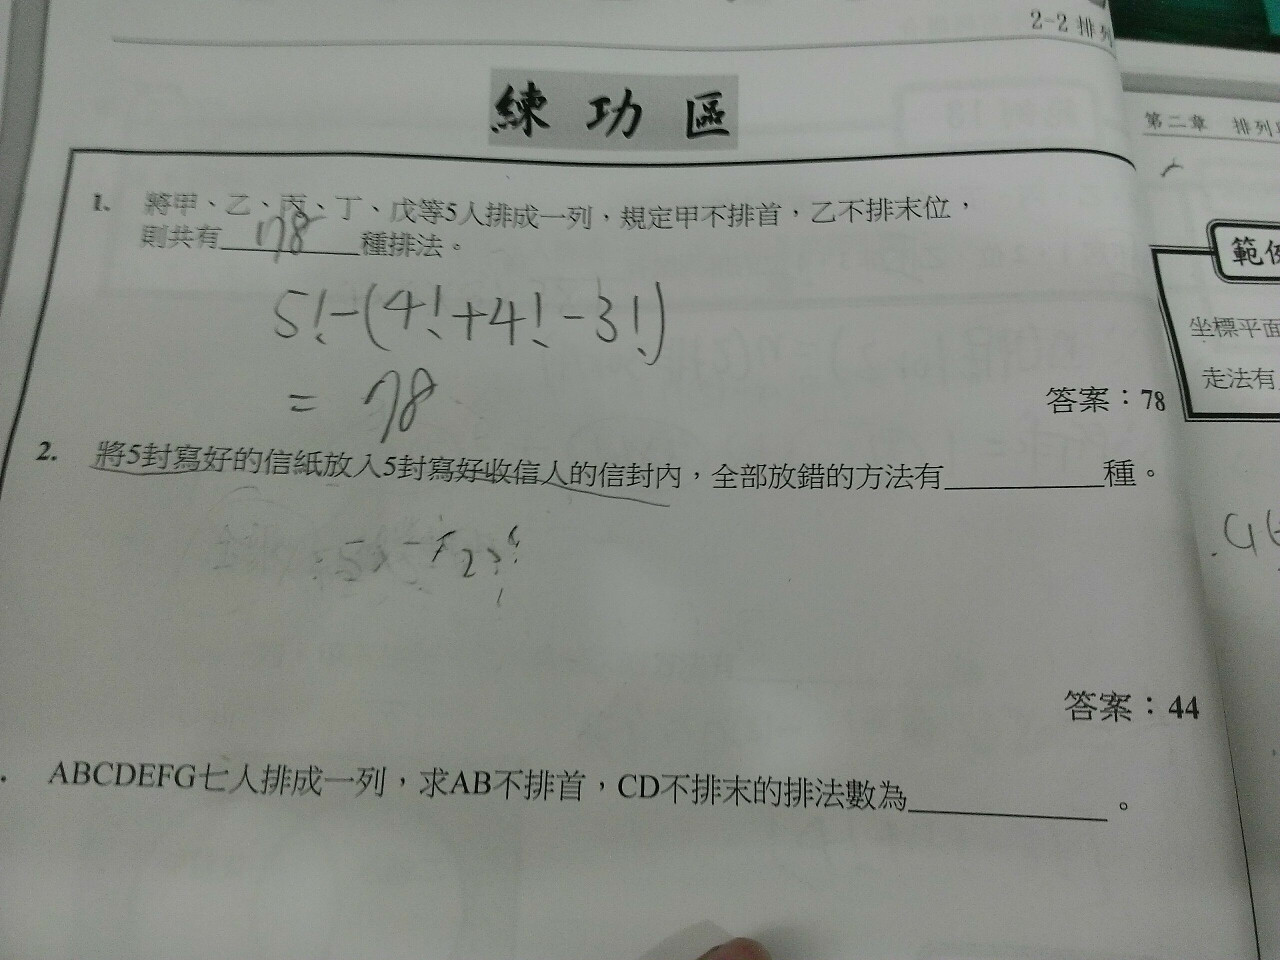 2-2 排列
練功區
第二章 排列
1. 將甲、乙、丙、丁、戊等5人排成一列，規定甲不排首，乙不排末位，
則共有 78 種排法。
5!-(4!+4!-3!)
= 78
答案：78
2. 將5封寫好的信紙放入5封寫好收信人的信封內，全部放錯的方法有__________種。
答案：44
ABCDEFG七人排成一列，求AB不排首，CD不排末的排法數為__________。
坐標平面
走法有